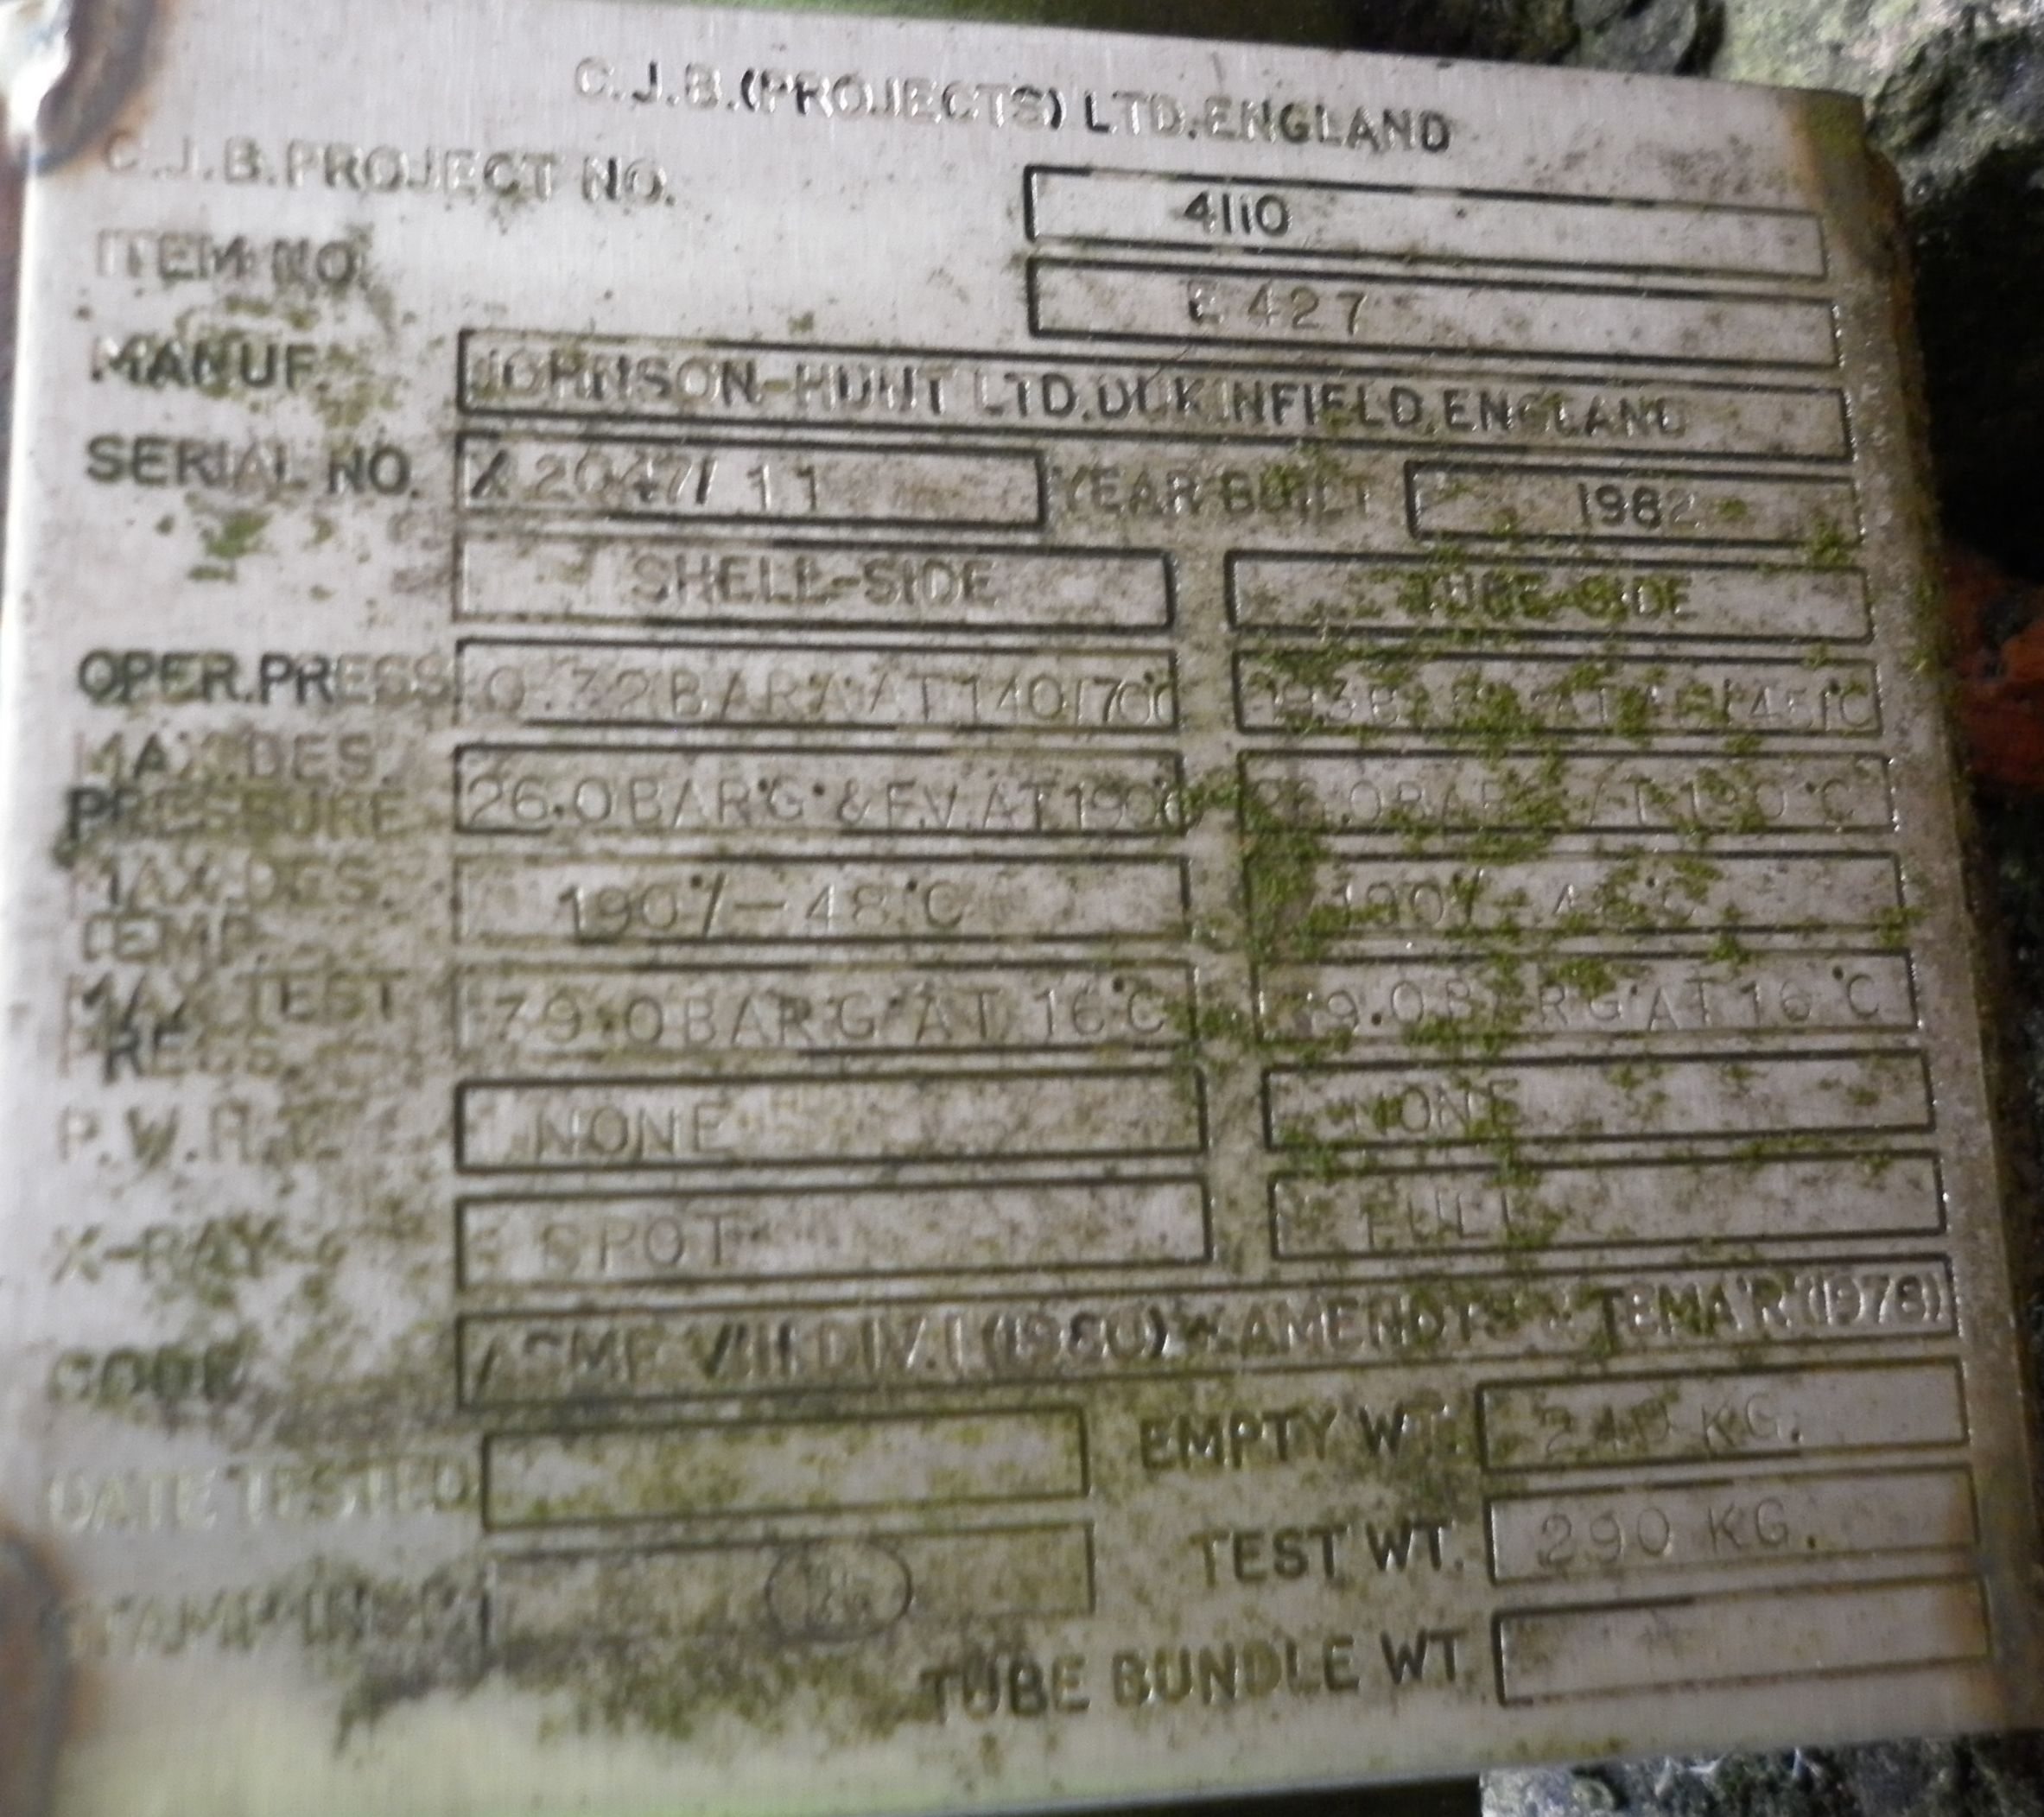 C.J.B.(PROJECTS) LTD.ENGLAND
C.J.B.PROJECT NO. 4110
ITEM NO. E427
MANUF. JOHNSON-HUNT LTD.DUKINFIELD,ENGLAND
SERIAL NO. X2047/11 YEAR BUILT 1982
SHELL-SIDE TUBE-SIDE
OPER.PRESS. BAR'A'AT140/70°C
MAX.DES. PRESSURE 26.0BAR'G'&F.V.AT190°C .0BAR AT190°C
MAX.DES. TEMP. 190°/-48°C 190°/-48°C
MAX.TEST PRESS. 39.0BAR'G'AT 16°C 39.0BAR'G'AT16°C
P.W.H.T. NONE NONE
X-RAY SPOT FULL
CODE ASME VIII.DIV.I(1980)&AMENDTS TEMA'R'(1978)
DATE TESTED EMPTY WT. 240 KG.
STAMP TEST WT. 290 KG.
TUBE BUNDLE WT